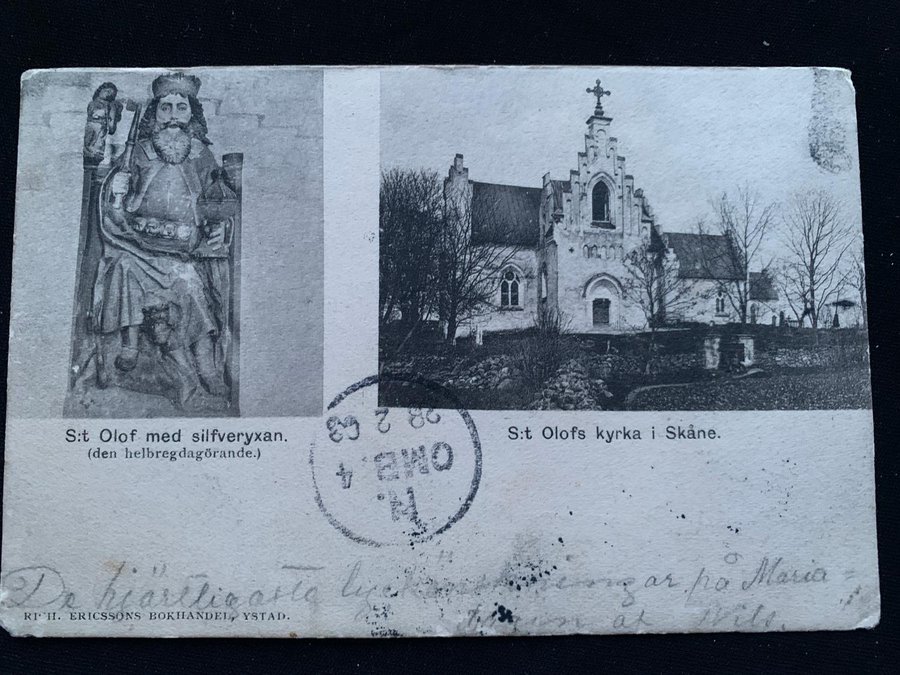 S:t Olof med silfveryxan.
(den helbregdagörande.)
S:t Olofs kyrka i Skåne.
N.
OMB. 4
28 2 03
De hjärtligaste lyckönskningar på Maria-
dagen af Nils.
H. ERICSSONS BOKHANDEL, YSTAD.